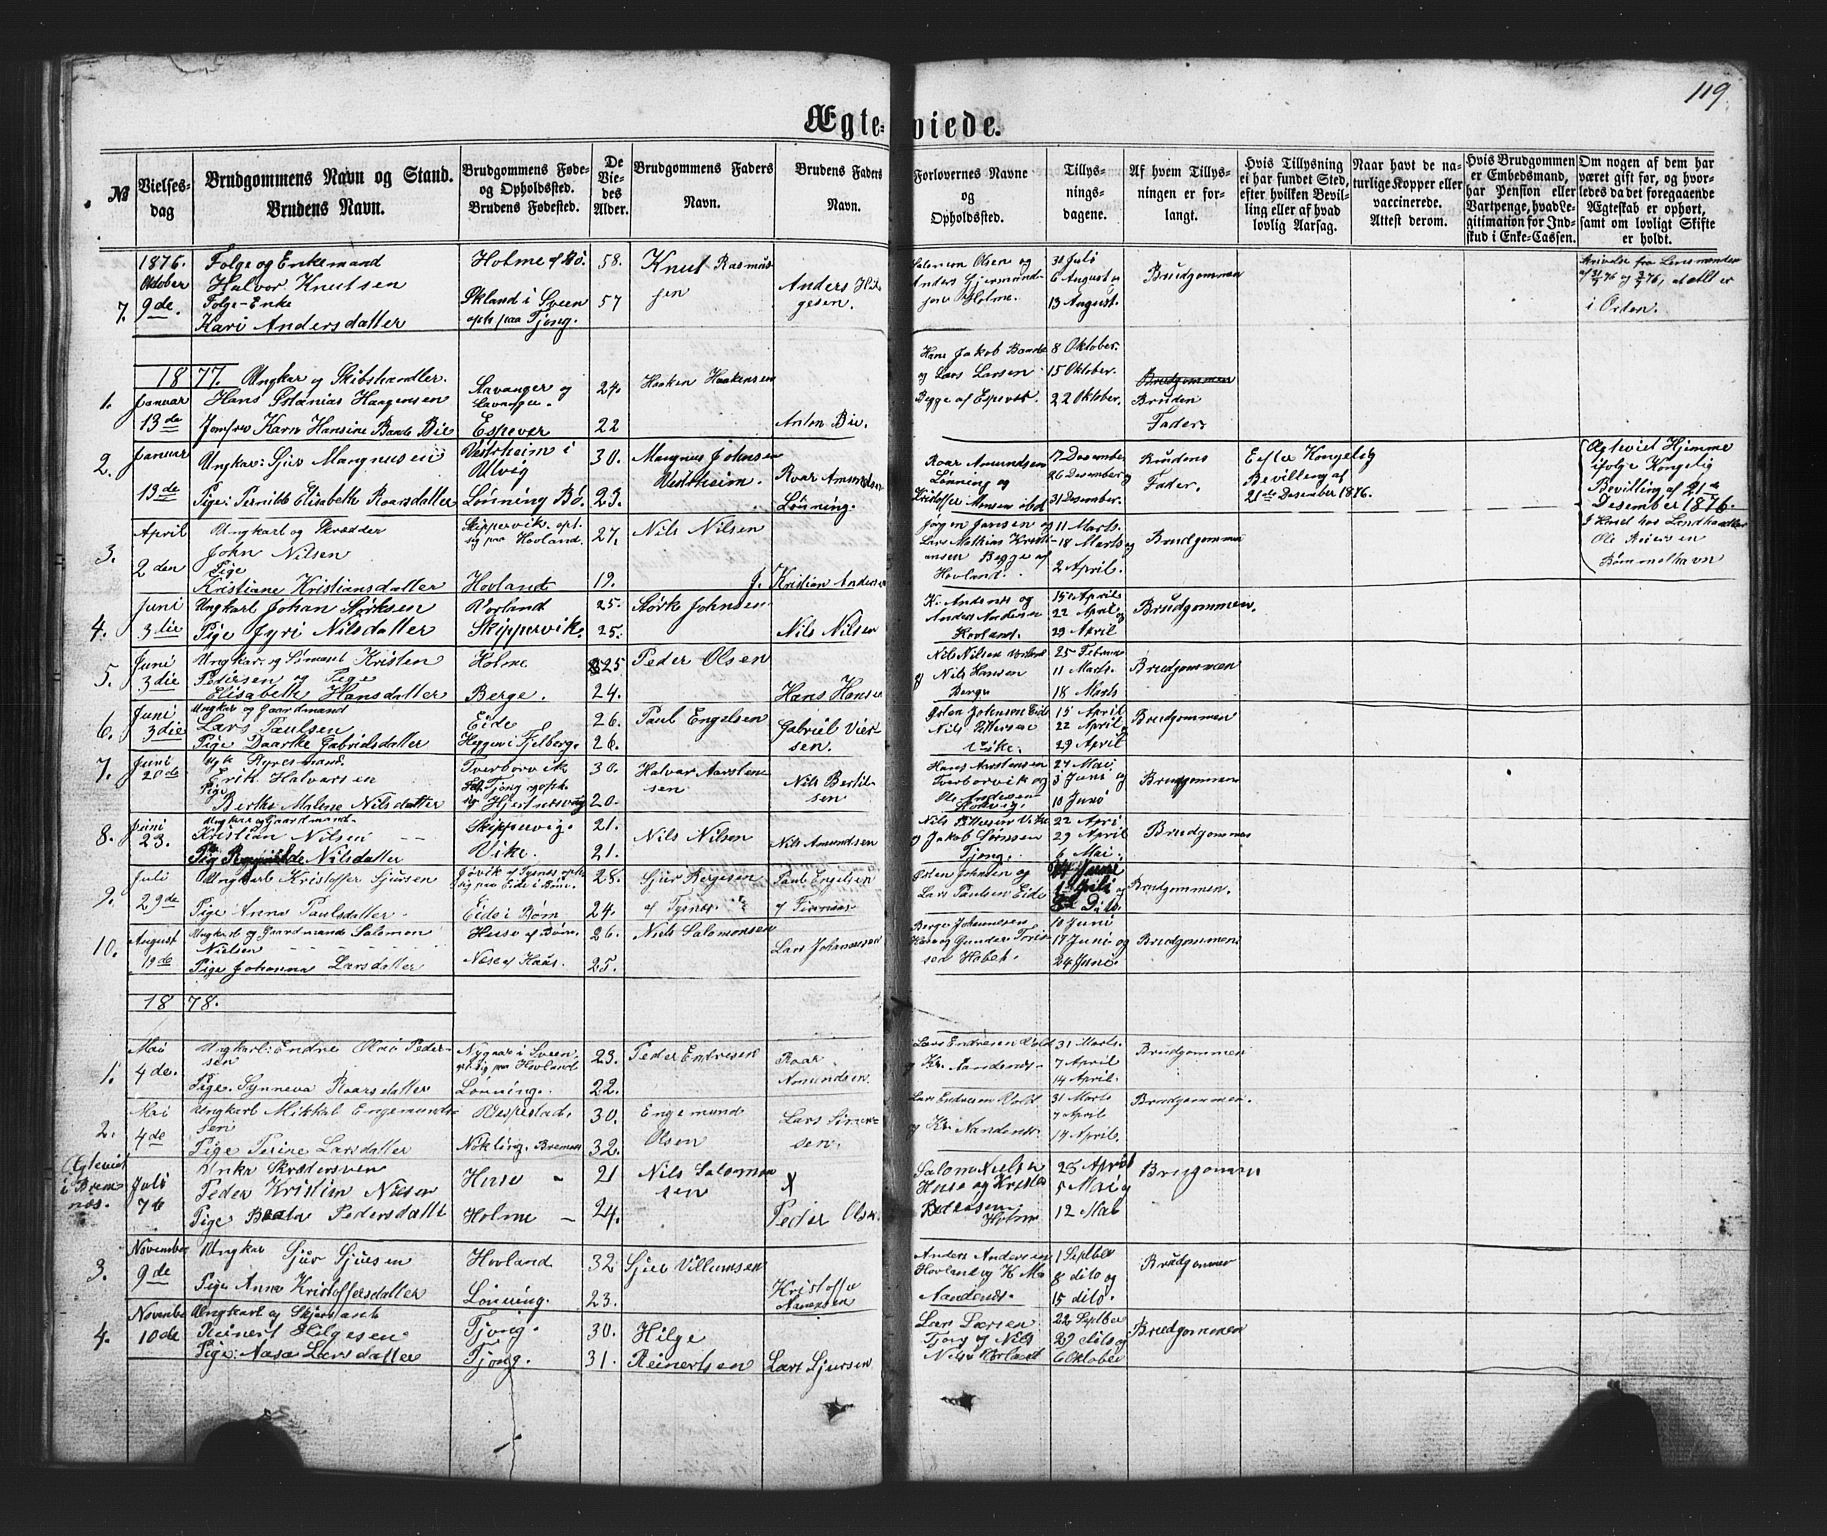 119
Ægteviede.
№
Vielses-dag
Brudgommens Navn og Stand.
Brudens Navn.
Brudgommens Føde- og Opholdssted.
Brudens Fødested.
De Viedes Alder.
Brudgommens Faders Navn.
Brudens Faders Navn.
Forlovernes Navne og Opholdssted.
Tillysningsdagene.
Af hvem Tillysningen er forlangt.
Hvis Tillysning ei har fundet Sted, efter hvilken Bevilling eller af hvad lovlig Aarsag.
Naar havt de naturlige Kopper eller vaccinerede. Attest derom.
Hvis Brudgommen er Embedsmand, har Pension eller Vartpenge, hvad Legitimation for Indskud i Enke-Cassen.
Om nogen af dem har været gift før, og hvorledes da det foregaaende Ægteskab er ophørt, samt om lovligt Skifte er holdt.
7. 1876. Oktober 9de.
Folge og Enkemand
Halvor Knutsen
Folge-Enke
Kari Andersdatter
Holme af Bø
Ekland i Sveen
oph. paa Tjong.
58.
57
Knut Rasmussen
Anders Helgesen.
Salomon Olsen og
Anders Gjermundsen Holme.
30 Juli
6 August
13 August
Brudgommen
i Orden.
1877.
1. Januar 13de
Ungkar og Skibshandler.
Hans Stanias Haagensen
Jomfru Karn Hansine Baade Bie
Stavanger og
Stavanger.
Espevær
24.
22
Haaken Haakensen
Anton Bie.
Hans Jakob Baade
og Lars Larsen
Begge af Espevær.
8 Oktober.
15 Oktober.
22 Oktober.
Brudgommen
Bruden
Fader
2. Januar 13de
Ungkar: Sjur Mangnusen
Pige: Pernille Elisabeth Roarsdatter
Vestrheim i
Ulvig
Lønning Bø.
30.
23.
Mangnus Johnsen
Vestrheim.
Roar Amundsen
Lønning.
Roar Amundsen
Lønning og
Kristoffer Monsen ibd
17 Desember
26 Desember
31 Desember.
Brudens
Fader.
Efter Kongelig
Bevilling af
21de Desember 1876.
Ægteviet Hjemme
ifølge Kongelig
Bevilling af 21de
Desember 1876.
Ole Reiersen
Bømmelhavn
3. April 2den
Ungkarl og Skrædder
John Nilsen
Pige
Kristiane Kristiansdatter
Skippervik. opt.
sig paa Hovland.
Hovland
27.
19.
Nils Nilsen
Kristian Andersen
Jørgen Jansen og
Lars Mathias Kristiansen Begge af
Hovland.
11 Marts.
18 Marts og
2 April.
Brudgommen
4. Juni 3die
Ungkarl Johan Størksen
Pige Jyri Nilsdatter
Vorland
Skippervik.
25.
25.
Størk Johnsen
Nils Nilsen
K. Andsnes og
Anders Andersen
Hovland.
15 April
22 April og
29 April
Brudgommen.
5. Juni 3die
Ungkar og Sømand Kristen
Pedersen og Pige
Elisabeth Hansdatter
Holme
Berge.
25
24.
Peder Olsen
Hans Hansen
Nils Nilsen Vorland
og Nils Hansen
Berge
25 Februar
11 Marts.
18 Marts
Brudgommen
6. Juni 3die
Ungkar og Gaardmand
Lars Paulsen
Pige Daarthe Gabrielsdatter
Eide
Heggen i Fjelberg.
26.
26.
Paul Engelsen
Gabriel Viersen.
Østen Johnsen Eide
Nils Pettersen
Vike.
15 April
22 April
29 April
Brudgommen
7. Juni 20de
Ugk Hyresmand
Erik Halvarsen
Pige
Birthe Malene Nilsdatter
Tverborvik
30.
20.
Halvar Aarstensen
Nils Bertilsen
Hans Aarstensen
Tverborvik og
Ole Andersen
27 Mai
3 Juni og
10 Juni
Brudgommen
8. Juni 23.
Ungkar og Gaardmand
Kristian Nilsen
Pig Nilsdatter
Skippervig.
Vike.
21.
21.
Nils Nilsen
Nils Amundsen
Nils Pettersen Vike
og Jakob Sørnsen
Tjong.
22 April
29 April
6 Mai.
Brudgommen
9. Juli 29de
Ungkarl Kristoffer Sjursen
Pige Anna Paulsdatter
Jøvik af Tysnes oph
sig paa Eide i Bøm.
Eide i Bøm
28.
24.
Sjur Bergesen
af Tysnes
Paul Engelsen
Østen Johnsen og
Lars Paulsen Eide
Juni
1 Juli og
Dito
Brudgommen.
10. August 19de
Ungkarl og Gaardmand Salomon
Nielsen
Pige Johanna Larsdatter
Huse af Bøm.
Næse af Haas.
26.
25.
Niels Salomonsen
Lars Johannesen
Berge Johannesen
og Gunder
Habet.
10 Juni
17 Juni og
24 Juni.
Brudgommen
1878.
1. Mai 4de.
Ungkarl: Endre Olai Pedersen
Pige. Synneva Roarsdatter
Nygaar i Sveen.
sig paa Hovland
Lønning.
23.
22.
Peder Endresen
Roar
Amundsen.
Lars Endresen Vold
og Kr. Nandens.
31 Marts.
7 April
14 April.
Brudgommen
2. Mai 4de
Ungkarl Mikkal Engemundsen
Pige Perine Larsdatter
Vespestad.
Nøkling. Bremnes
30.
32.
Engemund
Olsen
Lars Simensen.
Lars Endresen Vold
og Kr. Nandens.
31 Marts
7 April
14 April.
Brudgommen.
Ægteviet i Bremnes. Juli 76
Unkar Skrædersven
Peder Kristian Nilsen
Pige Beata Pedersdatter
Huse
Holme
21
24.
Nils Salomonsen
x
Peder Olsen
Salomon Nielsen
Huse og Kristen
Pedersen
Holme
25 April
5 Mai og
12 Mai
Brugommen
3. November 9de
Ungkar Sjur Sjursen
Pige Anna Kristoffersdatter
Hovland
Lønning.
32
23.
Sjur Villumsen
Kristoffer
Anders Andersen
Hovland og K. M.
Nandens.
1 Septber
8 dito og
15 dito.
Brudgommen
4. November 10de
Ungkarl og
Reinert Helgesen
Pige: Aasa Larsdatter
Tjong.
Tjong.
30.
31.
Hilge
Reinertsen
Lars Sjursen
Lars Larsen
Tjong og Nils
Nilsen Vorland
22 Septber
29 dito og
6 Oktober
Brudgommen